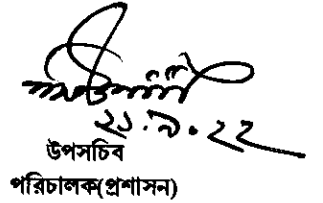 ২১.৯.২২
উপসচিব
পরিচালক(প্রশাসন)